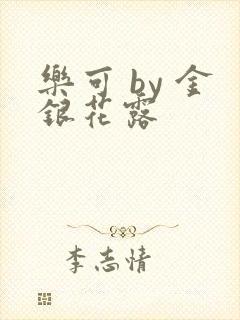 樂可 by 金
銀花露
李志情